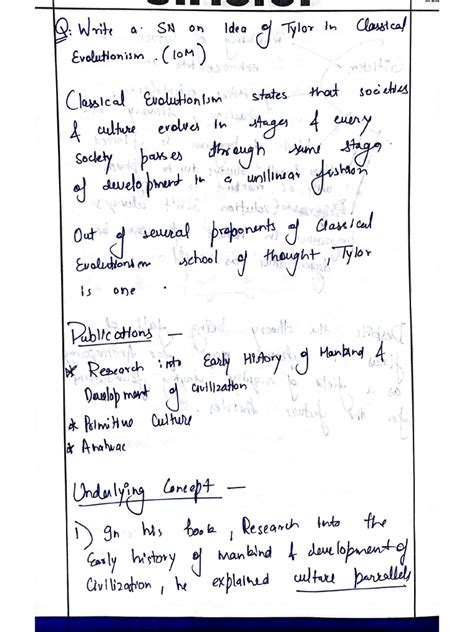 Q: Write a SN on Idea of Tylor in Classical
Evolutionism. (10M)
Classical Evolutionism states that societies
& culture evolves in stages & every
society passes through same stages
of development in a unilinear fashion
Out of several proponents of Classical
Evolutionism school of thought, Tylor
is one.
Publications —
* Research into Early History of Mankind &
Development of Civilization
* Primitive Culture
* Anahuac
Underlying Concept —
1) In his book, Research Into the
Early history of mankind & development of
Civilization, he explained culture parrallels